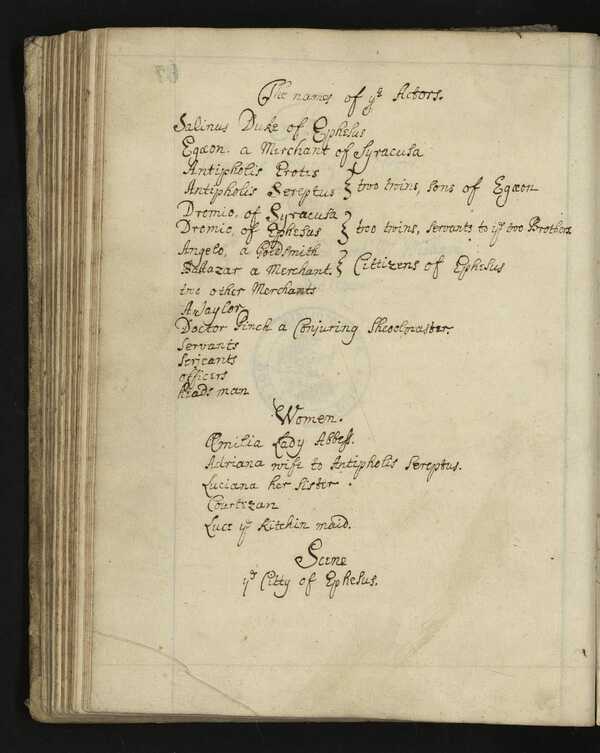 The names of ye Actors.
Salinus Duke of Ephesus
Egæon. a Merchant of Syracusa
Antipholis Erotes
Antipholis Sereptus } two twins, sons of Egæon
Dromio, of Syracusa
Dromio, of Ephesus } two twins, servants to ye two Brothers
Angelo, a Goldsmith
Baltazar a Merchant. } Cittizens of Ephesus
two other Merchants
A Jaylor
Doctor Pinch a Conjuring Shcoolmaster.
Servants
Serjeants
officers
Heads man
Women.
Æmilia Lady Abbess.
Adriana wife to Antipholis Sereptus.
Luciana her Sister.
Courtizan
Luce ye Kitchin maid.
Scene
ye Citty of Ephesus.